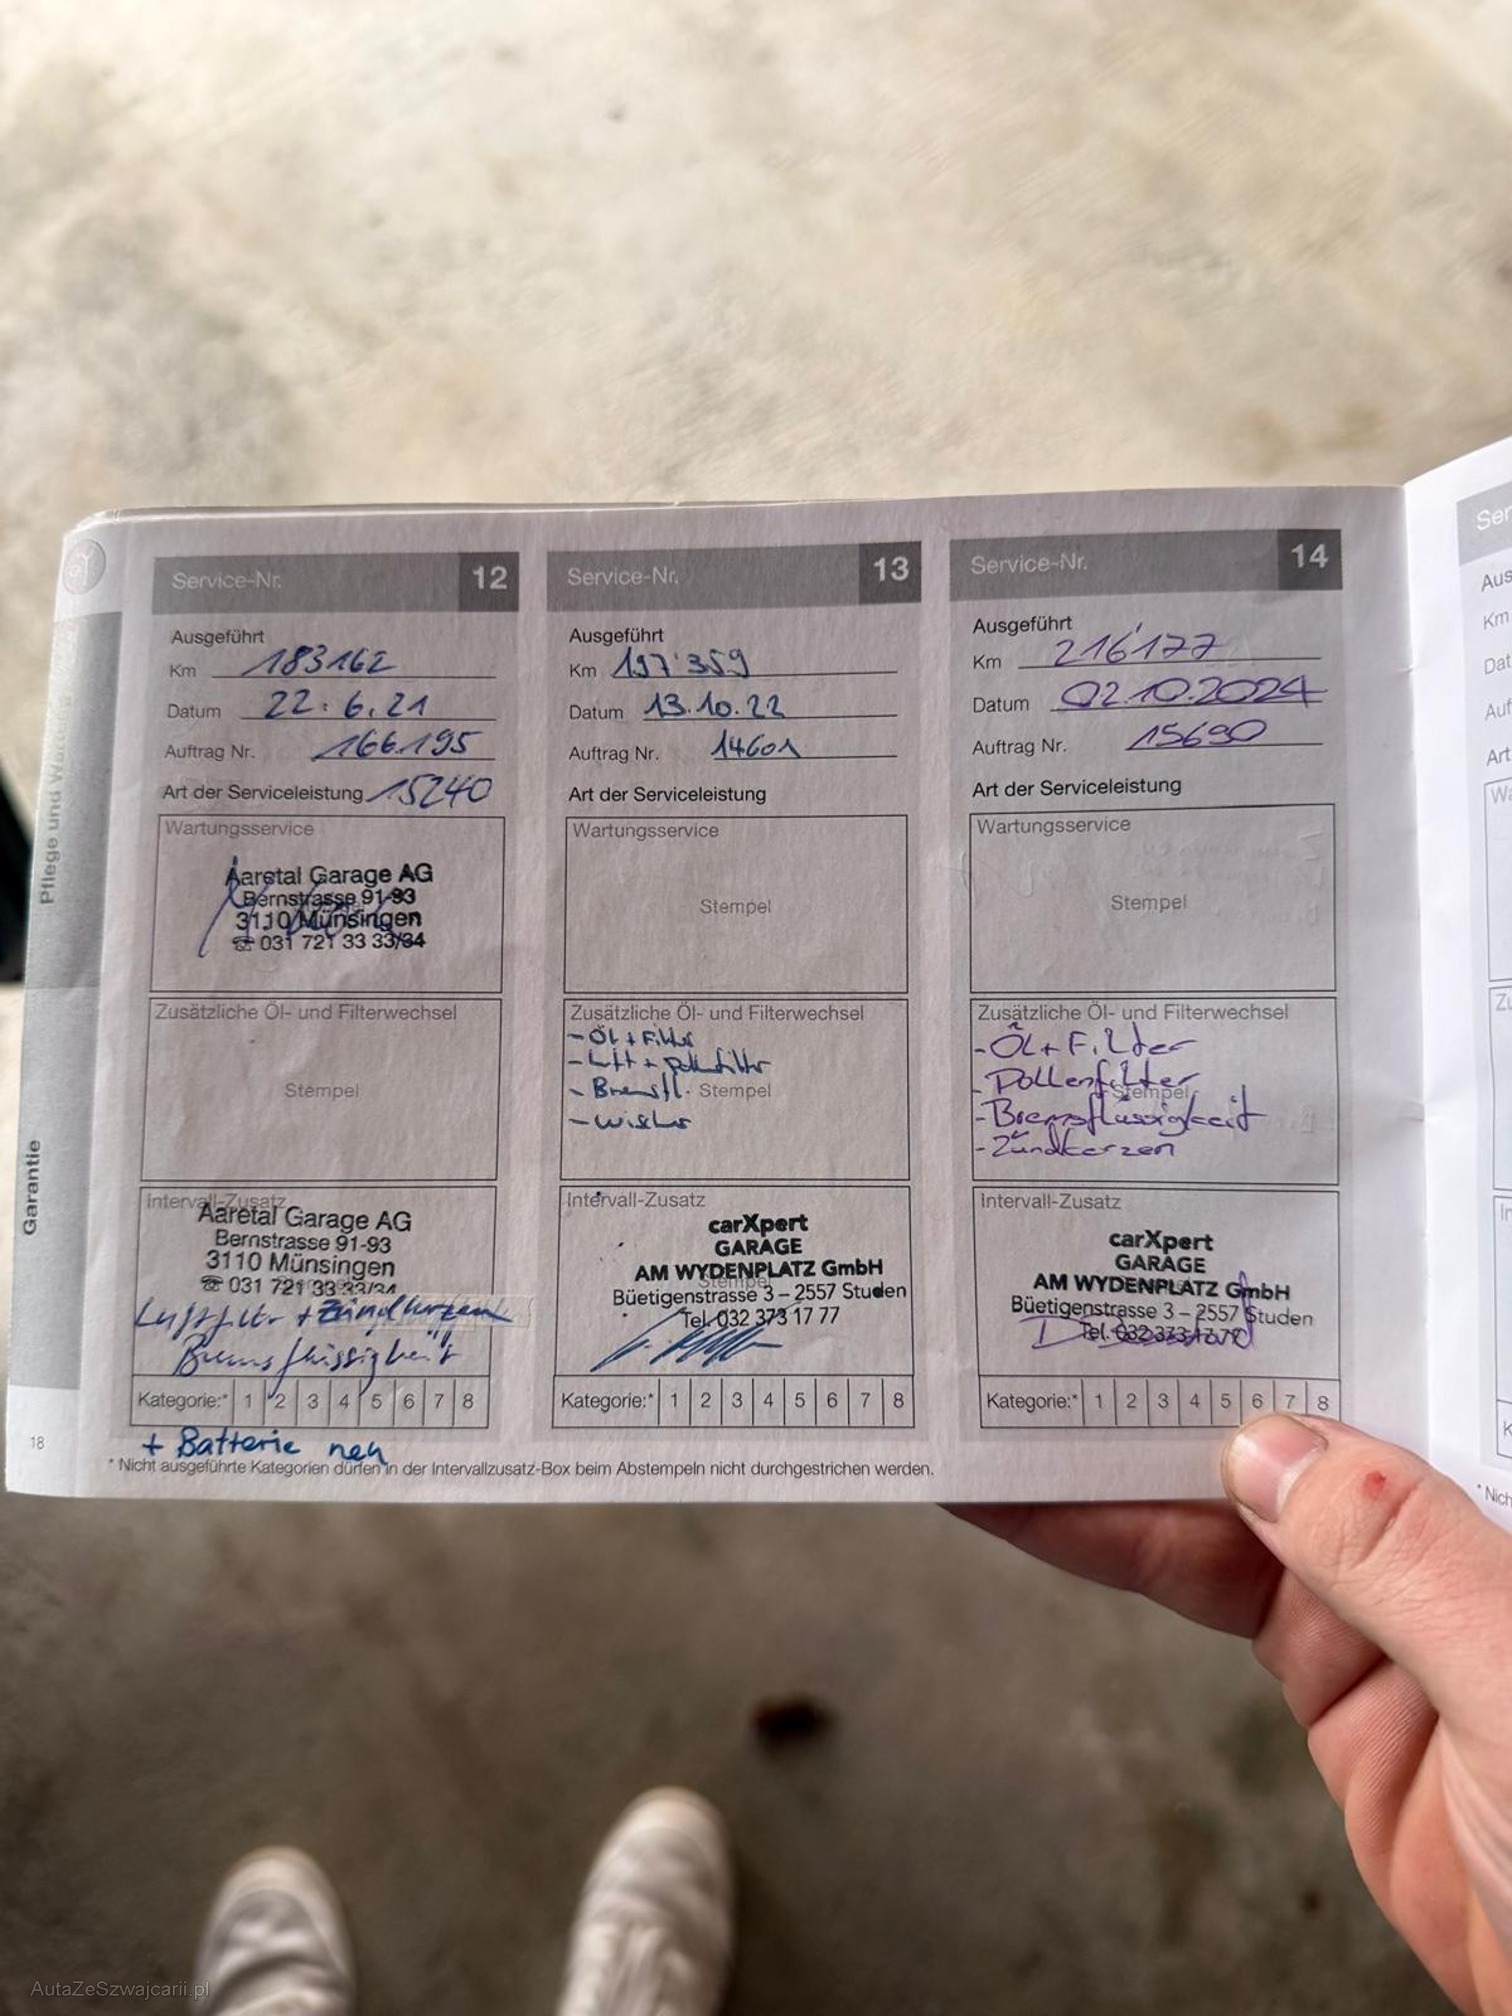 Service-Nr. 12
Ausgeführt
Km 183162
Datum 22.6.21
Auftrag Nr. 166.195
Art der Serviceleistung 15240
Wartungsservice
Aaretal Garage AG
Bernstrasse 91-93
3110 Münsingen
☎ 031 721 33 33/34
Zusätzliche Öl- und Filterwechsel
Stempel
Intervall-Zusatz
Aaretal Garage AG
Bernstrasse 91-93
3110 Münsingen
☎ 031 721 33 33/34
Luftfilter + Zündkerzen
Bremsflüssigkeit
Kategorie:* 1 2 3 4 5 6 7 8
+ Batterie neu
Service-Nr. 13
Ausgeführt
Km 197'359
Datum 13.10.22
Auftrag Nr. 14601
Art der Serviceleistung
Wartungsservice
Stempel
Zusätzliche Öl- und Filterwechsel
- Öl + Filter
- Luft + Pollenfilter
- Bremsfl.
Stempel
- Wischer
Intervall-Zusatz
carXpert
GARAGE
AM WYDENPLATZ GmbH
Stempel
Büetigenstrasse 3 – 2557 Studen
Tel. 032 373 17 77
Kategorie:* 1 2 3 4 5 6 7 8
Service-Nr. 14
Ausgeführt
Km 216'177
Datum 02.10.2024
Auftrag Nr. 15690
Art der Serviceleistung
Wartungsservice
Stempel
Zusätzliche Öl- und Filterwechsel
- Öl + Filter
- Pollenfilter
Stempel
- Bremsflüssigkeit
- Zündkerzen
Intervall-Zusatz
carXpert
GARAGE
AM WYDENPLATZ GmbH
Büetigenstrasse 3 – 2557 Studen
Tel. 032 373 17 77
Kategorie:* 1 2 3 4 5 6 7 8
* Nicht ausgeführte Kategorien dürfen in der Intervallzusatz-Box beim Abstempeln nicht durchgestrichen werden.
Pflege und Wartung
Garantie
18
Ser
Aus
Km
Dat
Auf
Art
Wa
Zu
In
K
* Nich
AutaZeSzwajcarii.pl